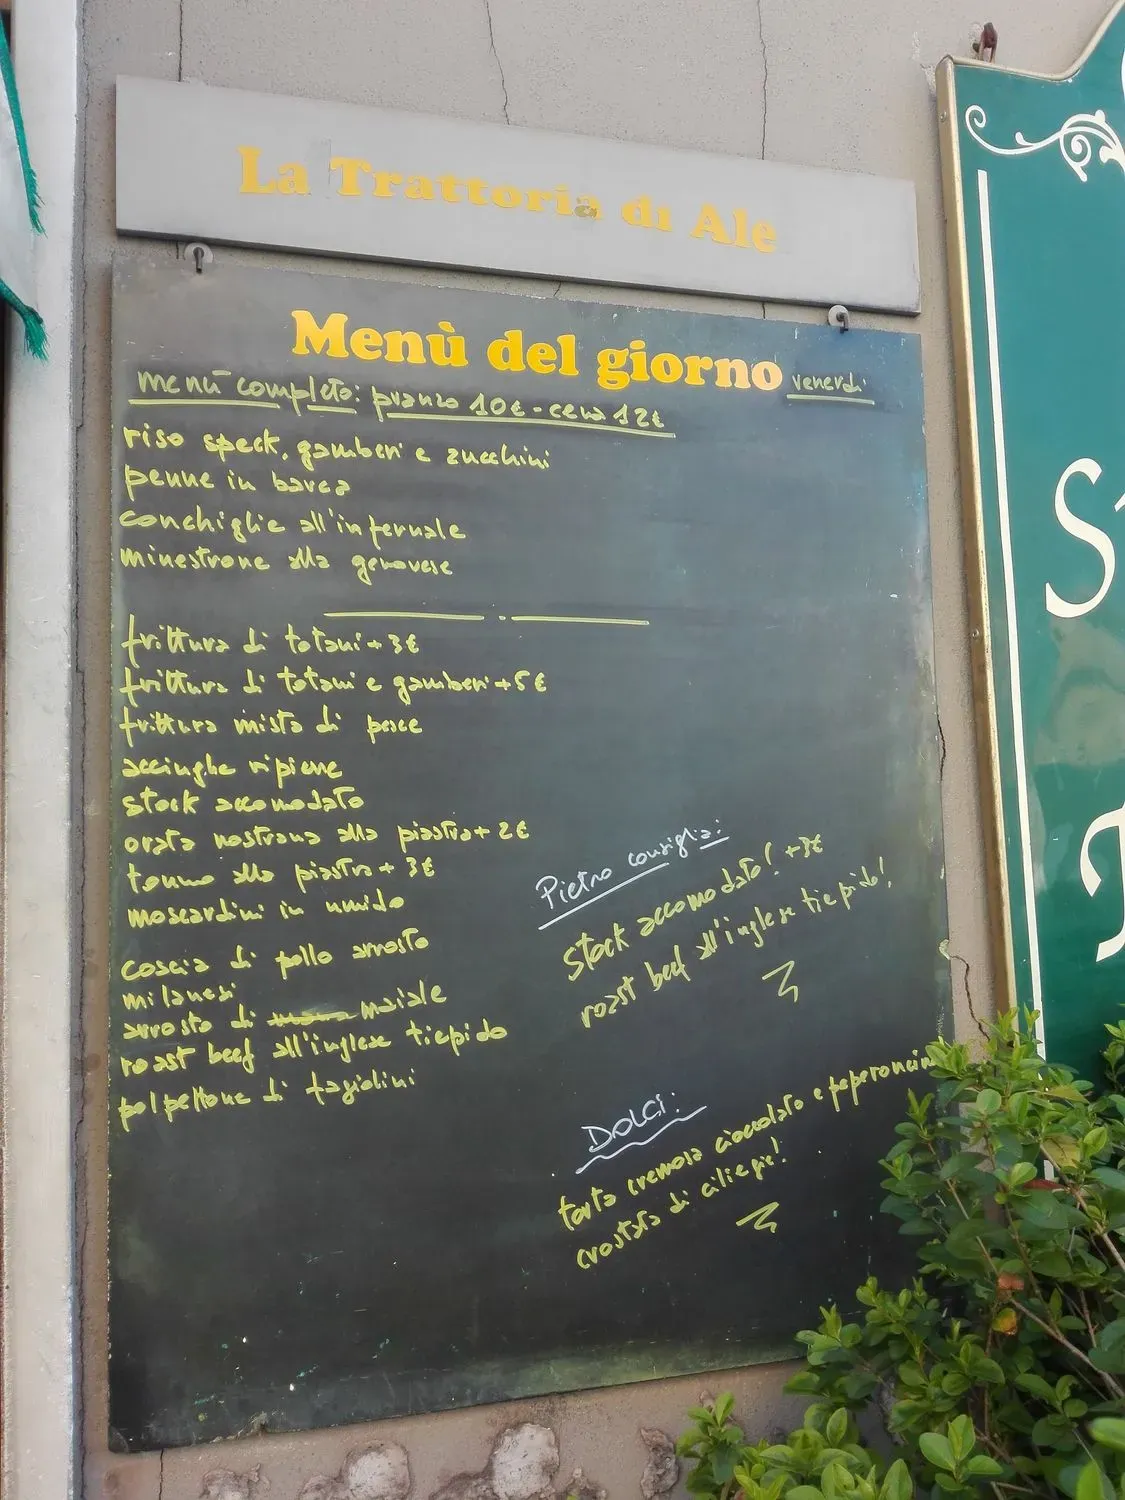 La Trattoria di Ale
Menù del giorno venerdì
menù completo: pranzo 10€ - cena 12€
riso speck, gamberi e zucchini
penne in barca
conchiglie all'infernale
minestrone alla genovese
frittura di totani + 3€
frittura di totani e gamberi + 5€
frittura mista di pesce
acciughe ripiene
stock accomodato
orata nostrana alla piastra + 2€
tonno alla piastra + 3€
moscardini in umido
coscia di pollo arrosto
milanesi
arrosto di maiale
roast beef all'inglese tiepido
polpettone di fagiolini
Pietro consiglia:
stock accomodato! + 3€
roast beef all'inglese tiepido!
DOLCI:
torta cremosa cioccolato e peperoncin
crostata di ciliegie!
S